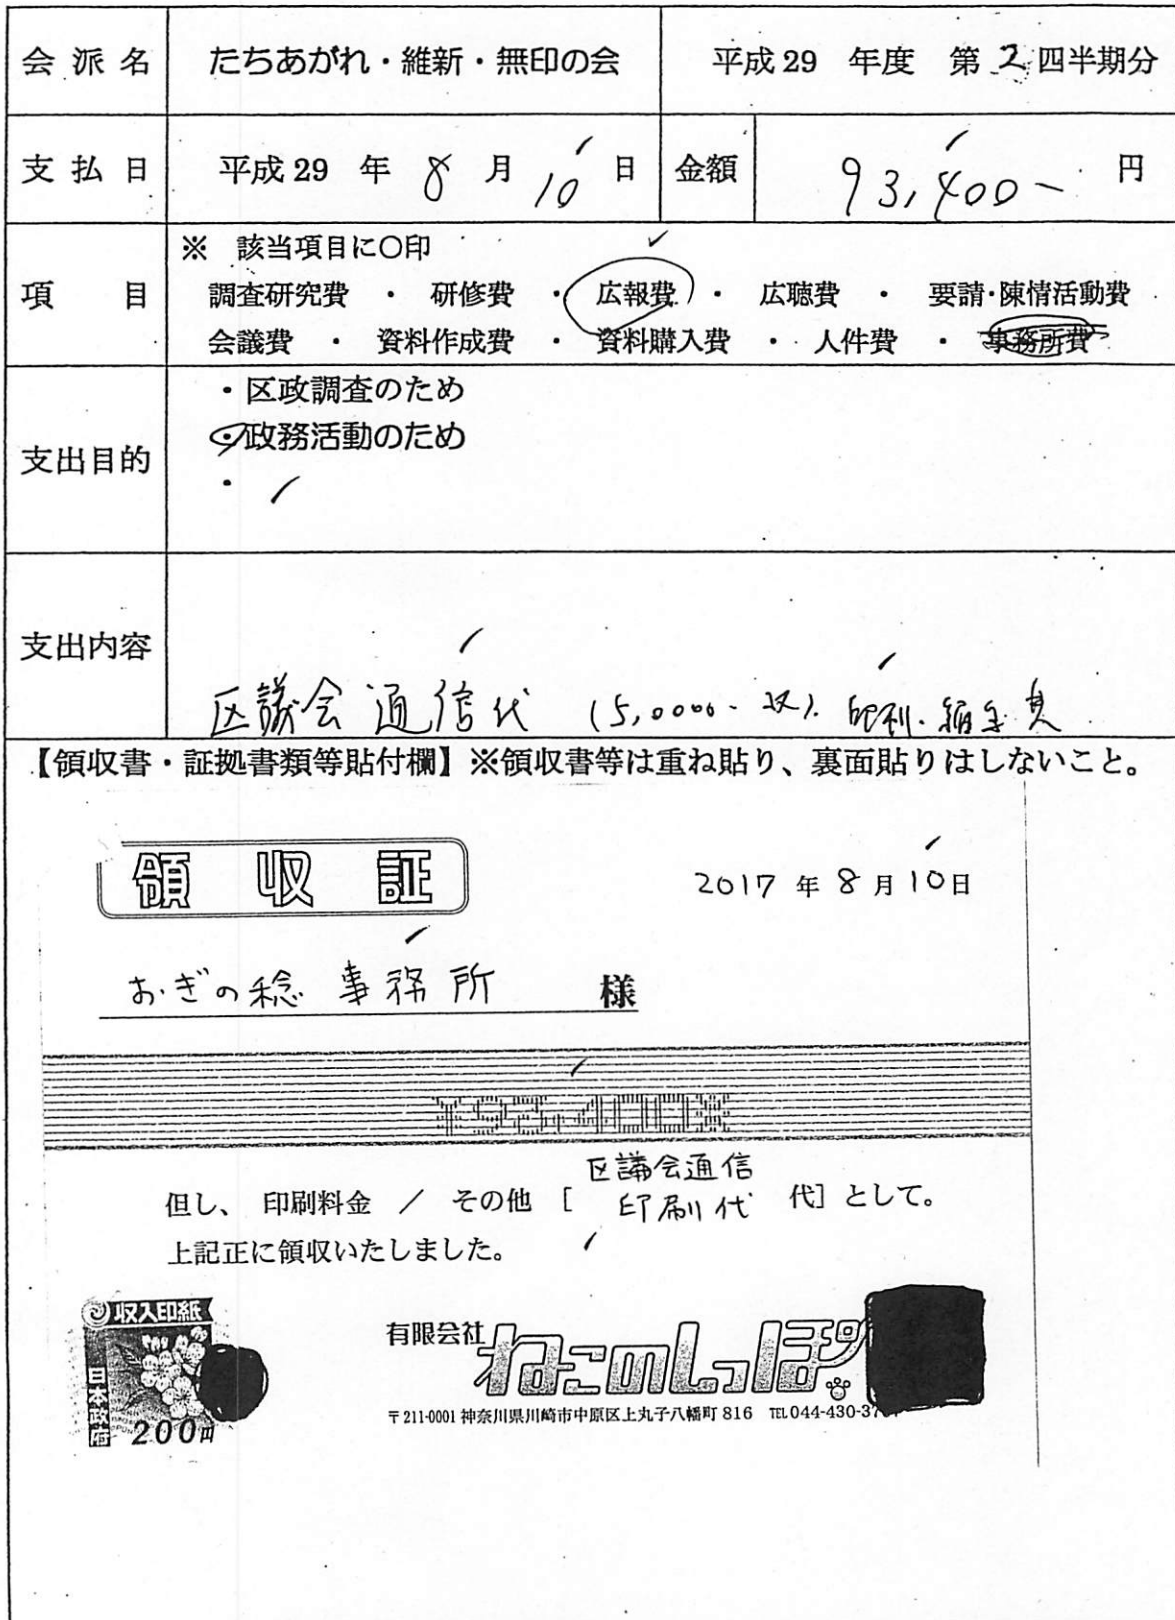 会派名 たちあがれ・維新・無印の会 平成29 年度 第2四半期分
支払日 平成29 年 8 月 10 日 金額 93,400- 円
項目 ※ 該当項目に○印
調査研究費 ・ 研修費 ・ 広報費 ・ 広聴費 ・ 要請・陳情活動費
会議費 ・ 資料作成費 ・ 資料購入費 ・ 人件費 ・ 事務所費
支出目的 ・区政調査のため
・政務活動のため
・
支出内容 区議会通信代 (5,0000- 収). 印刷・編集費
【領収書・証拠書類等貼付欄】※領収書等は重ね貼り、裏面貼りはしないこと。
領収証
2017 年 8 月 10日
おぎの稔 事務所 様
区議会通信
但し、 印刷料金 / その他 [ 印刷代 代] として。
上記正に領収いたしました。
収入印紙
日本政府
200円
有限会社 ねこのしっぽ
〒211-0001 神奈川県川崎市中原区上丸子八幡町816 TEL 044-430-3